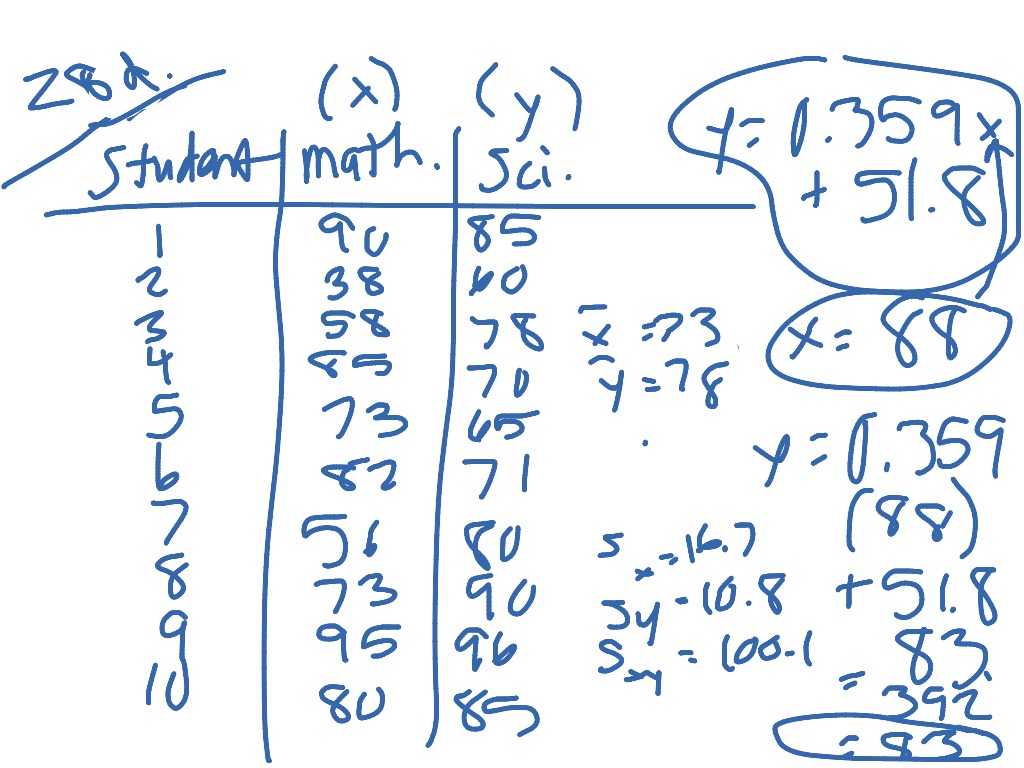 28 d.
(x) (y)
Student math. Sci.
1 90 85
2 38 60
3 58 78
4 85 70
5 73 65
6 82 71
7 56 80
8 73 90
9 95 96
10 80 85
x̄ = 73
ȳ = 78
Sx = 16.7
Sy = 10.8
Sxy = 100.1
y = 0.359x
+ 51.8
x = 88
y = 0.359
(88)
+ 51.8
= 83.
392
= 83